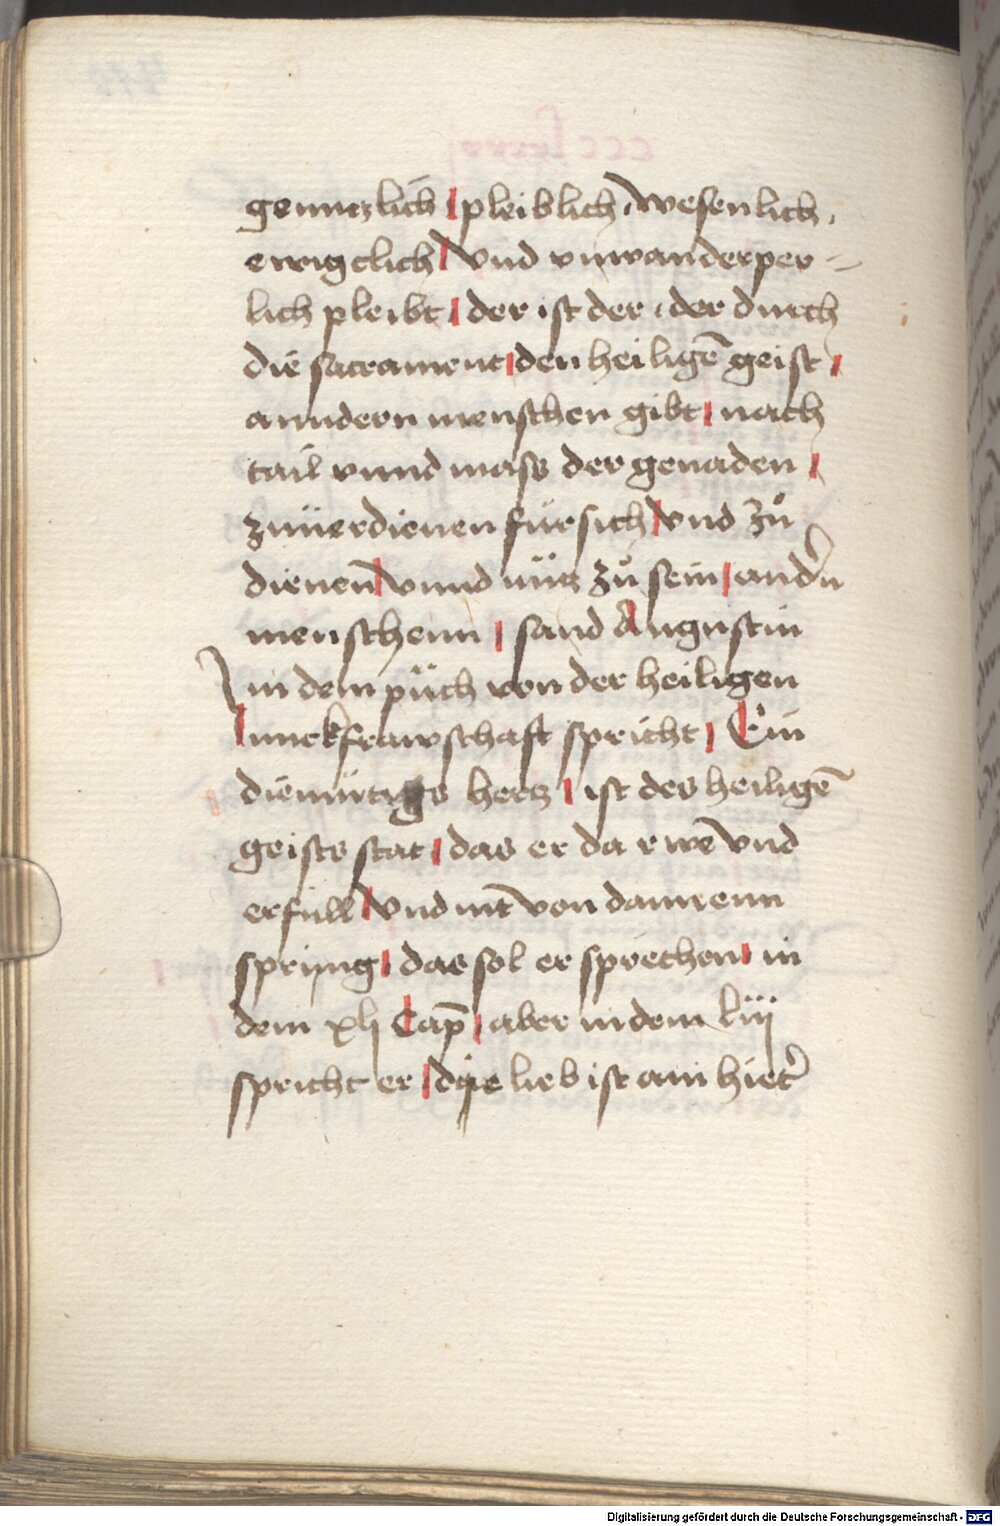 genntzlich pleiblich, wesenlich,
ewigclich vnd vnwanderper =
lich pleibt der ist der, der durch
die sacrament den heiligē geist
anndern menschen gibt nach
tail vnnd mass der genaden
zuuerdienen für sich vnd zů
dienen vnnd nütz zů sein andˀn
menschenn sand Augustin
in dem püch von der heiligen
Junckfrawschaft spricht Ein
diemütigs hertz ist des heiligē
geists stat das er da rwē vnd
erfüll vnd nit von dannenn
spring das sol er sprechen in
dem xlj Cap̄ aber in dem liij
spricht er die lieb ist ain hietˀ
Digitalisierung gefördert durch die Deutsche Forschungsgemeinschaft - DFG